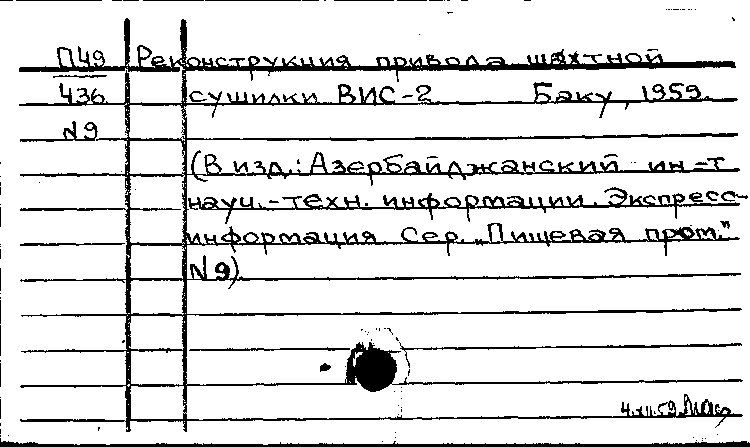 П49 Реконструкция привода шахтной
436 сушилки ВИС-2 Баку, 1959.
N9
(В изд.: Азербайджанский ин-т
науч.-техн. информации. Экспресс-
информация. Сер. „Пищевая пром."
N9).
4.XII.59.